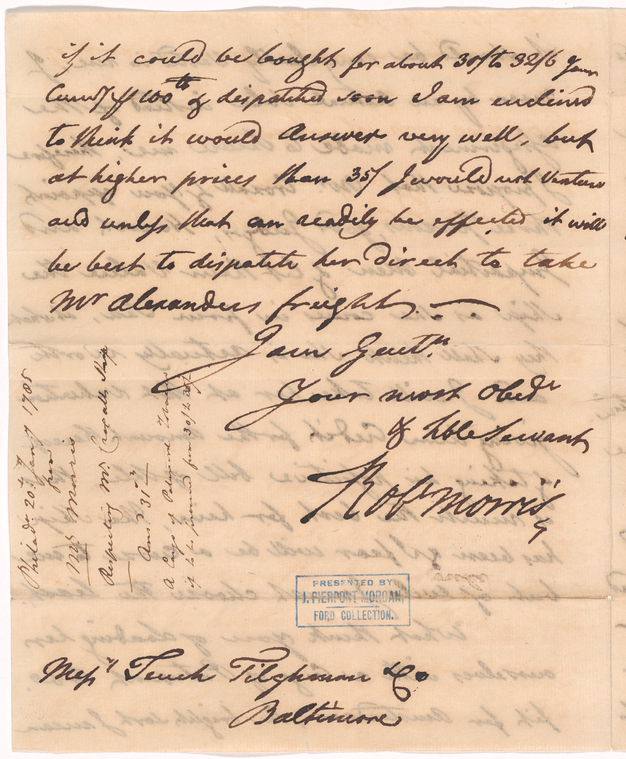 if it could be bought for about 30/ to 32/6 your
Curr^y p 100^lb & dispatched soon I am enclined
to think it would answer very well, but
at higher prices than 35/ I would not venture
and unless that can readily be effected it will
be best to dispatch her direct to take
Mr Alexanders freight. —
I am Gent^n
Your most Obed^t
& hble Servant
Rob^t Morris
Philad^a 20^th Jan^y 1785
from
Mr Morris
Respecting Mr Ship
Ans^d 31^st
A Cargo of
if to be procured from 30/ to 35/
PRESENTED BY
J. PIERPONT MORGAN,
FORD COLLECTION.
Mess^rs Tench Tilghman & Co
Baltimore